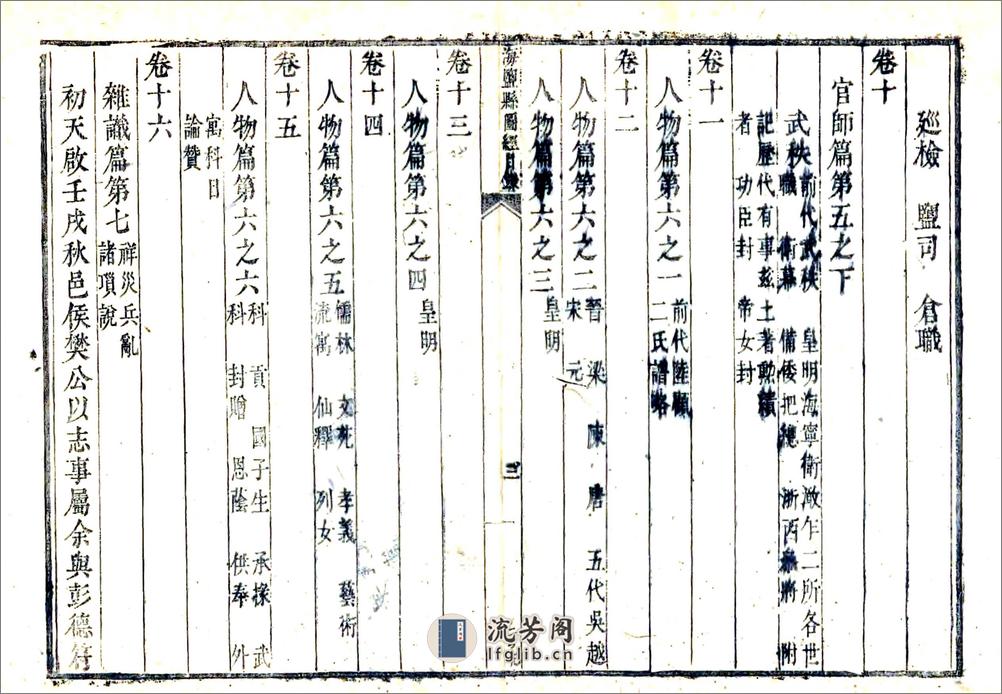 廵檢　鹽司　倉職
卷十
官師篇第五之下
武秩前代武秩　皇明海寧衛澉乍二所各世
職　衛幕　備倭把總　浙西叅將　附
記歷代有事兹土著勳績
者　功臣封　帝女封
卷十一
人物篇第六之一前代陸顧
二氏譜略
卷十二
人物篇第六之二晉　梁　陳　唐　五代吳越
宋　元
人物篇第六之三皇明
海鹽縣圖經目錄
三
卷十三
人物篇第六之四皇明
卷十四
人物篇第六之五儒林　文苑　孝義　藝術
流寓　仙釋　列女
卷十五
人物篇第六之六科　貢　國子生　承掾　武
科　封贈　恩蔭　供奉　外
寓科目
論贊
卷十六
雜識篇第七祥災兵亂
諸瑣說
初天啟壬戌秋邑侯樊公以志事屬余與彭德符
流芳阁
lfglib.cn